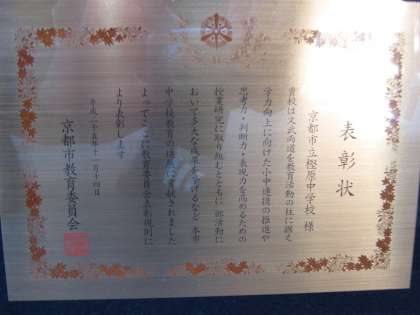 表彰状
京都市立樫原中学校 様
貴校は文武両道を教育活動の柱に据え
学力向上に向けた小中連携の推進や
思考力・判断力・表現力を高めるための
授業研究に取り組むとともに 部活動に
おいても大きな成果をあげるなど 本市
中学校教育の振興に貢献されました
よってここに教育委員会表彰規則に
より表彰します
平成二十五年十一月十四日
京都市教育委員会